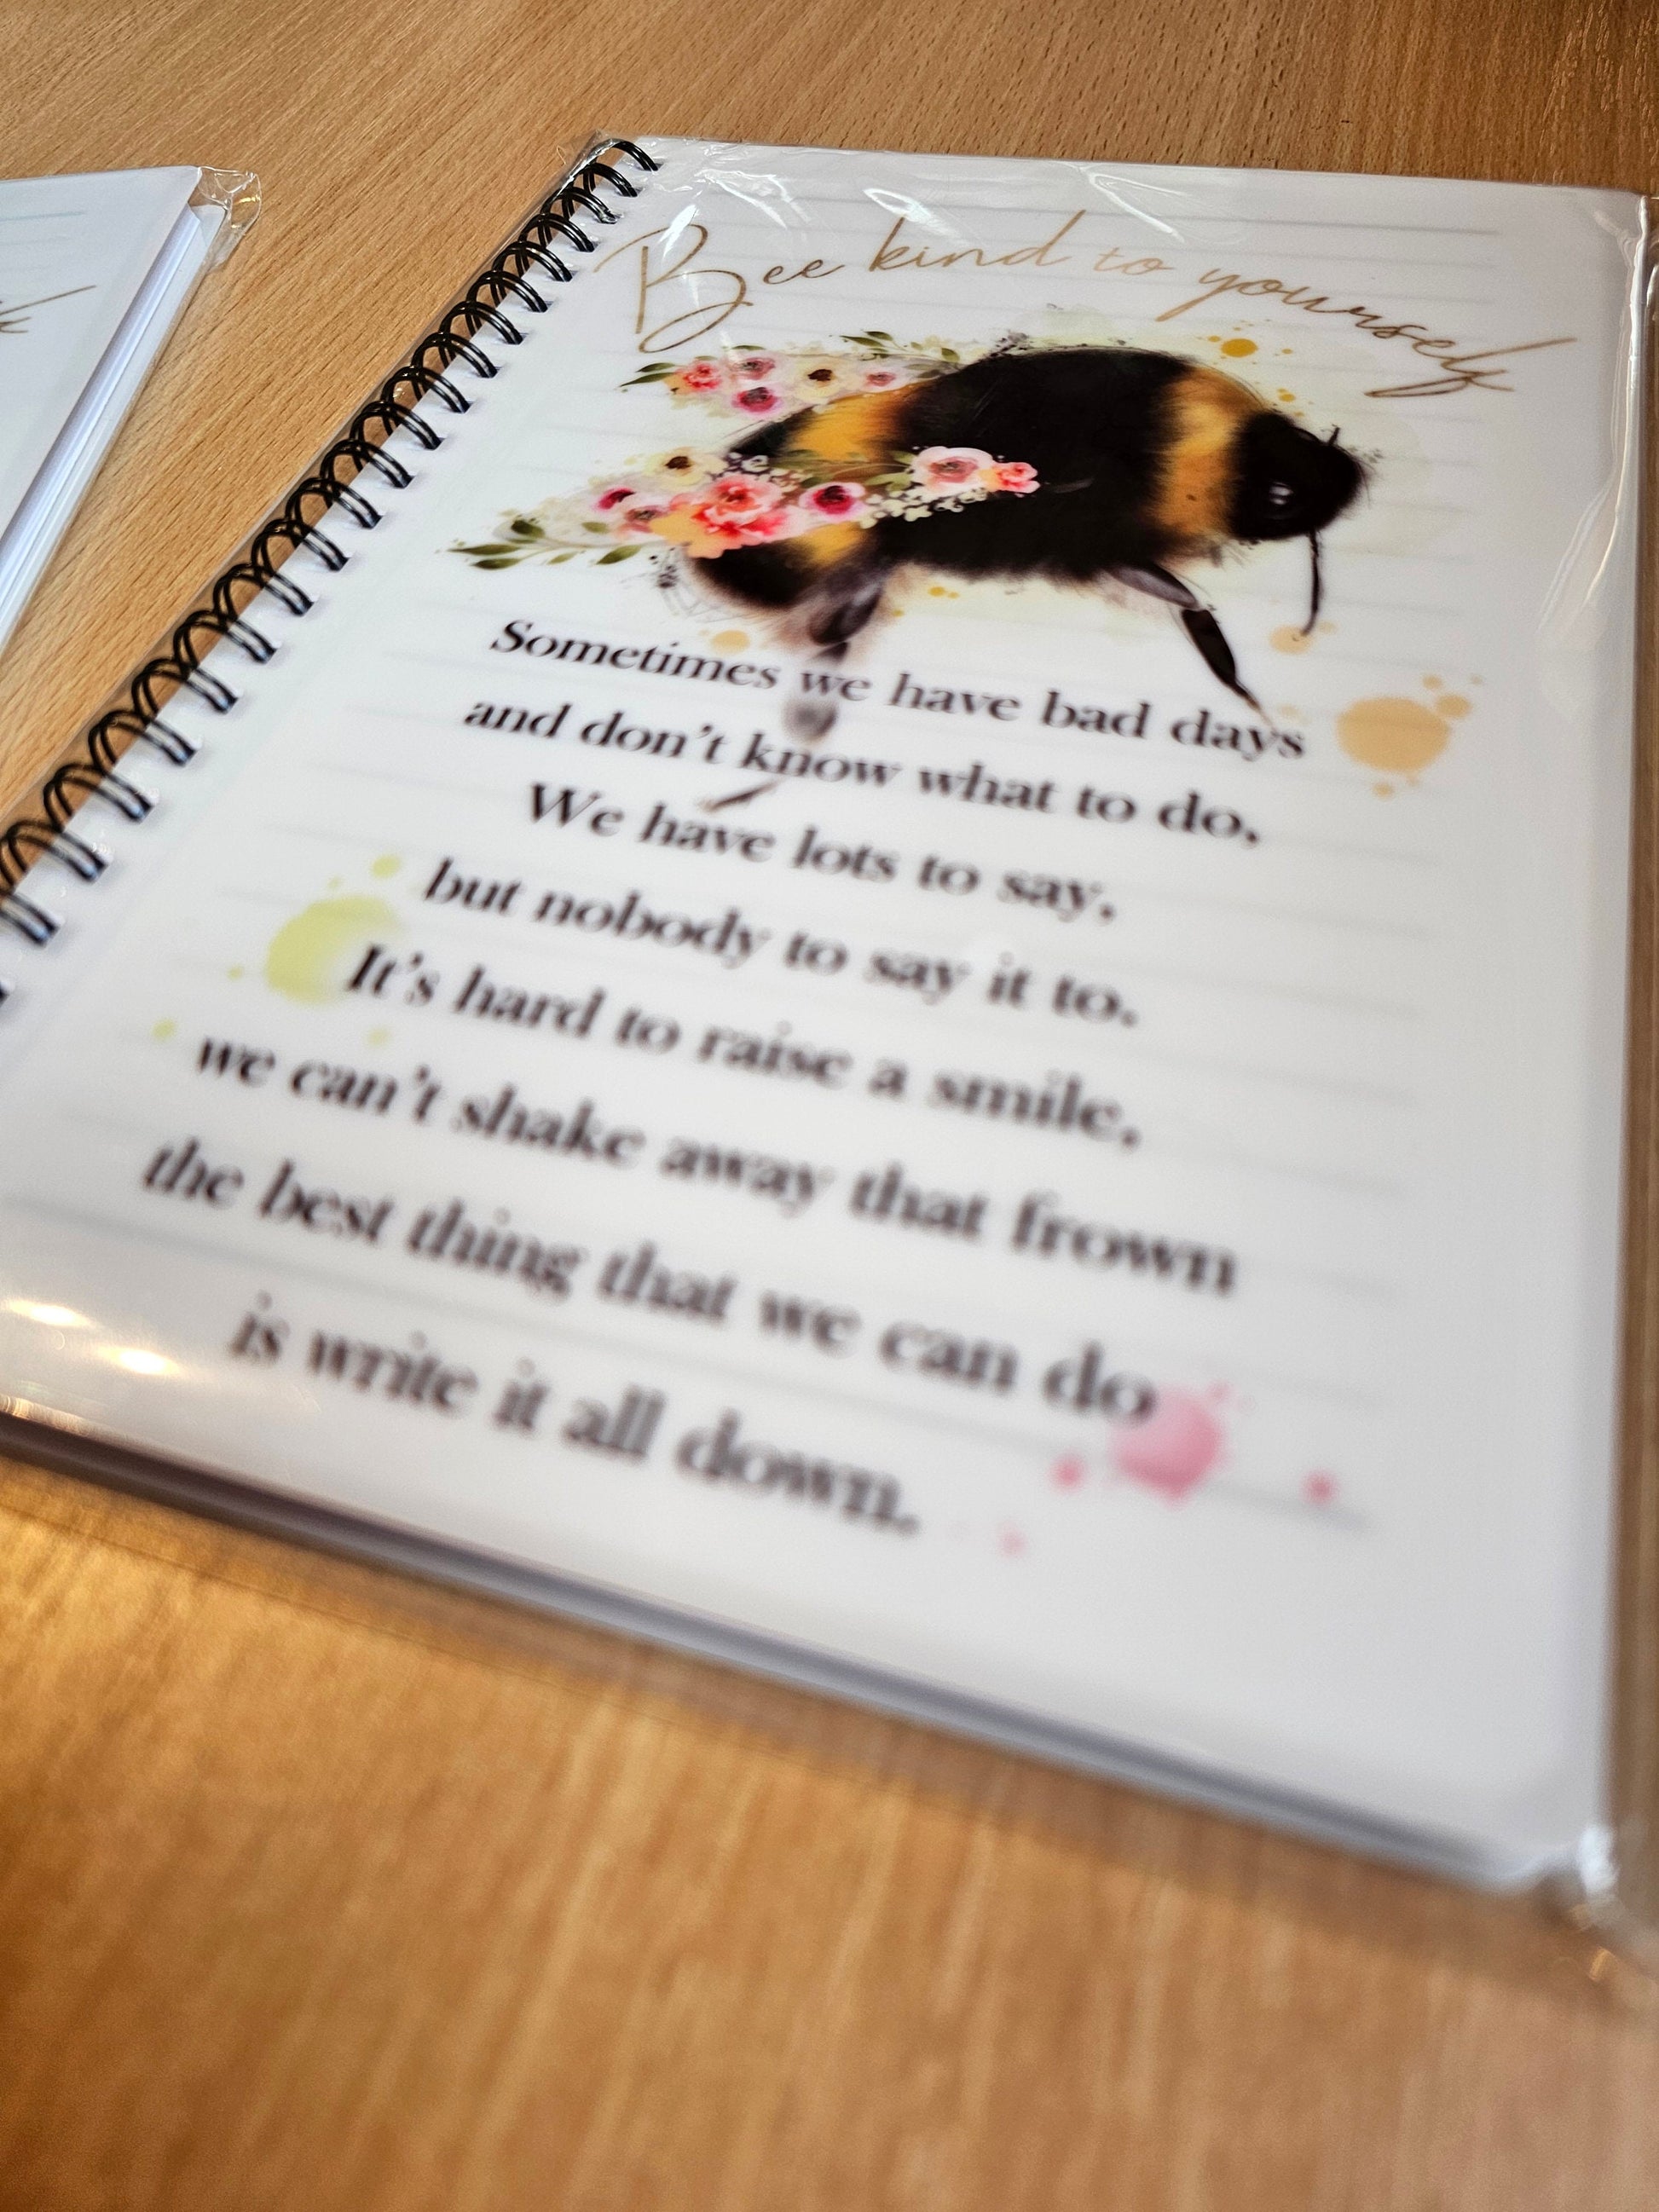 Bee kind to yourself
Sometimes we have bad days
and don't know what to do,
We have lots to say,
but nobody to say it to.
It's hard to raise a smile,
we can't shake away that frown
the best thing that we can do
is write it all down.